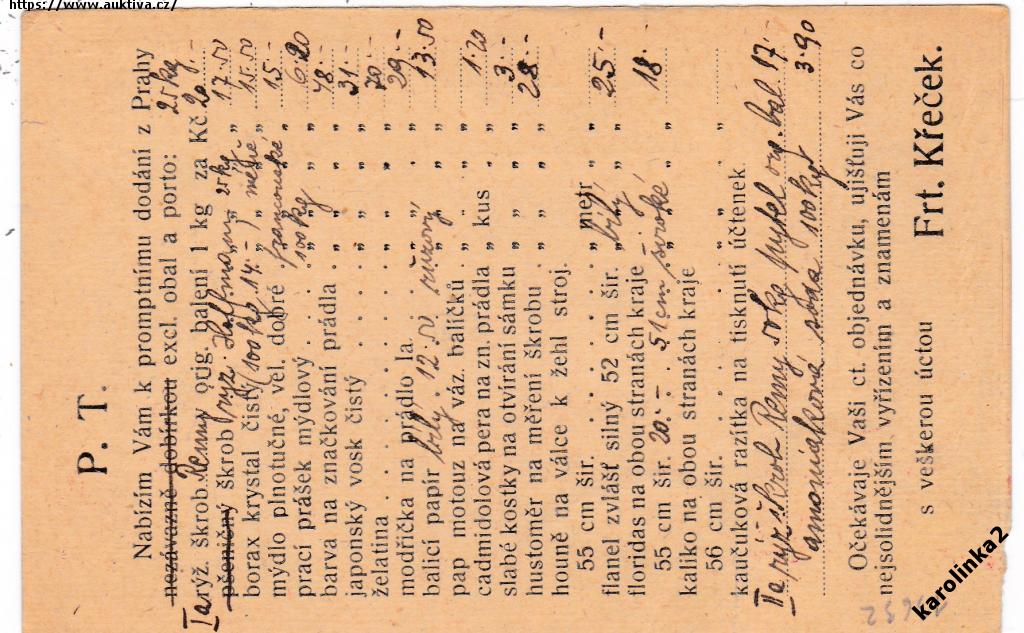 https://www.auktiva.cz/
P. T.
Nabízím Vám k promptnímu dodání z Prahy
nezávazně dobírkou excl. obal a porto: 25 kg
Ia rýž. škrob. Remy orig. balení 1 kg za Kč 20.-
pšeničný škrob rýž. Hoffmann 25 kg „ 17.50
borax krystal čistý (100 kg 14.-) „ „ 15.50
mýdlo plnotučné, vel. dobré „ „ 15.-
prací prášek mýdlový 100 kg „ „ 6.20
barva na značkování prádla „ „ „ 48.-
japonský vosk čistý „ „ „ 31.-
želatina „ „ „ 70.-
modřička na prádlo Ia. „ „ 29.-
balicí papír bílý 12.50 růžový „ „ 13.50
pap motouz na váz. balíčků „ „ „
cadmidolová pera na zn. prádla „ kus „ 1.20
slabé kostky na otvírání sámku „ „ „ 3.-
hustoměr na měření škrobu „ „ „ 28.-
houně na válce k žehl stroj.
55 cm šir. „ metr „
flanel zvlášť silný 52 cm šir. „ bílý „ 25.-
floridas na obou stranách kraje
55 cm šir. 20.- 51 cm široké „ „ 18.-
kaliko na obou stranách kraje
56 cm šir. „ „ „
kaučuková razítka na tisknutí účtenek
IIa rýž. škrob Remy 50 kg pytel org. bal 17.-
amoniaková soda 100 kg 3.90
Očekávaje Vaši ct. objednávku, ujišťuji Vás co
nejsolidnějším vyřízením a znamenám
s veškerou úctou
Frt. Křeček.
karolinka2